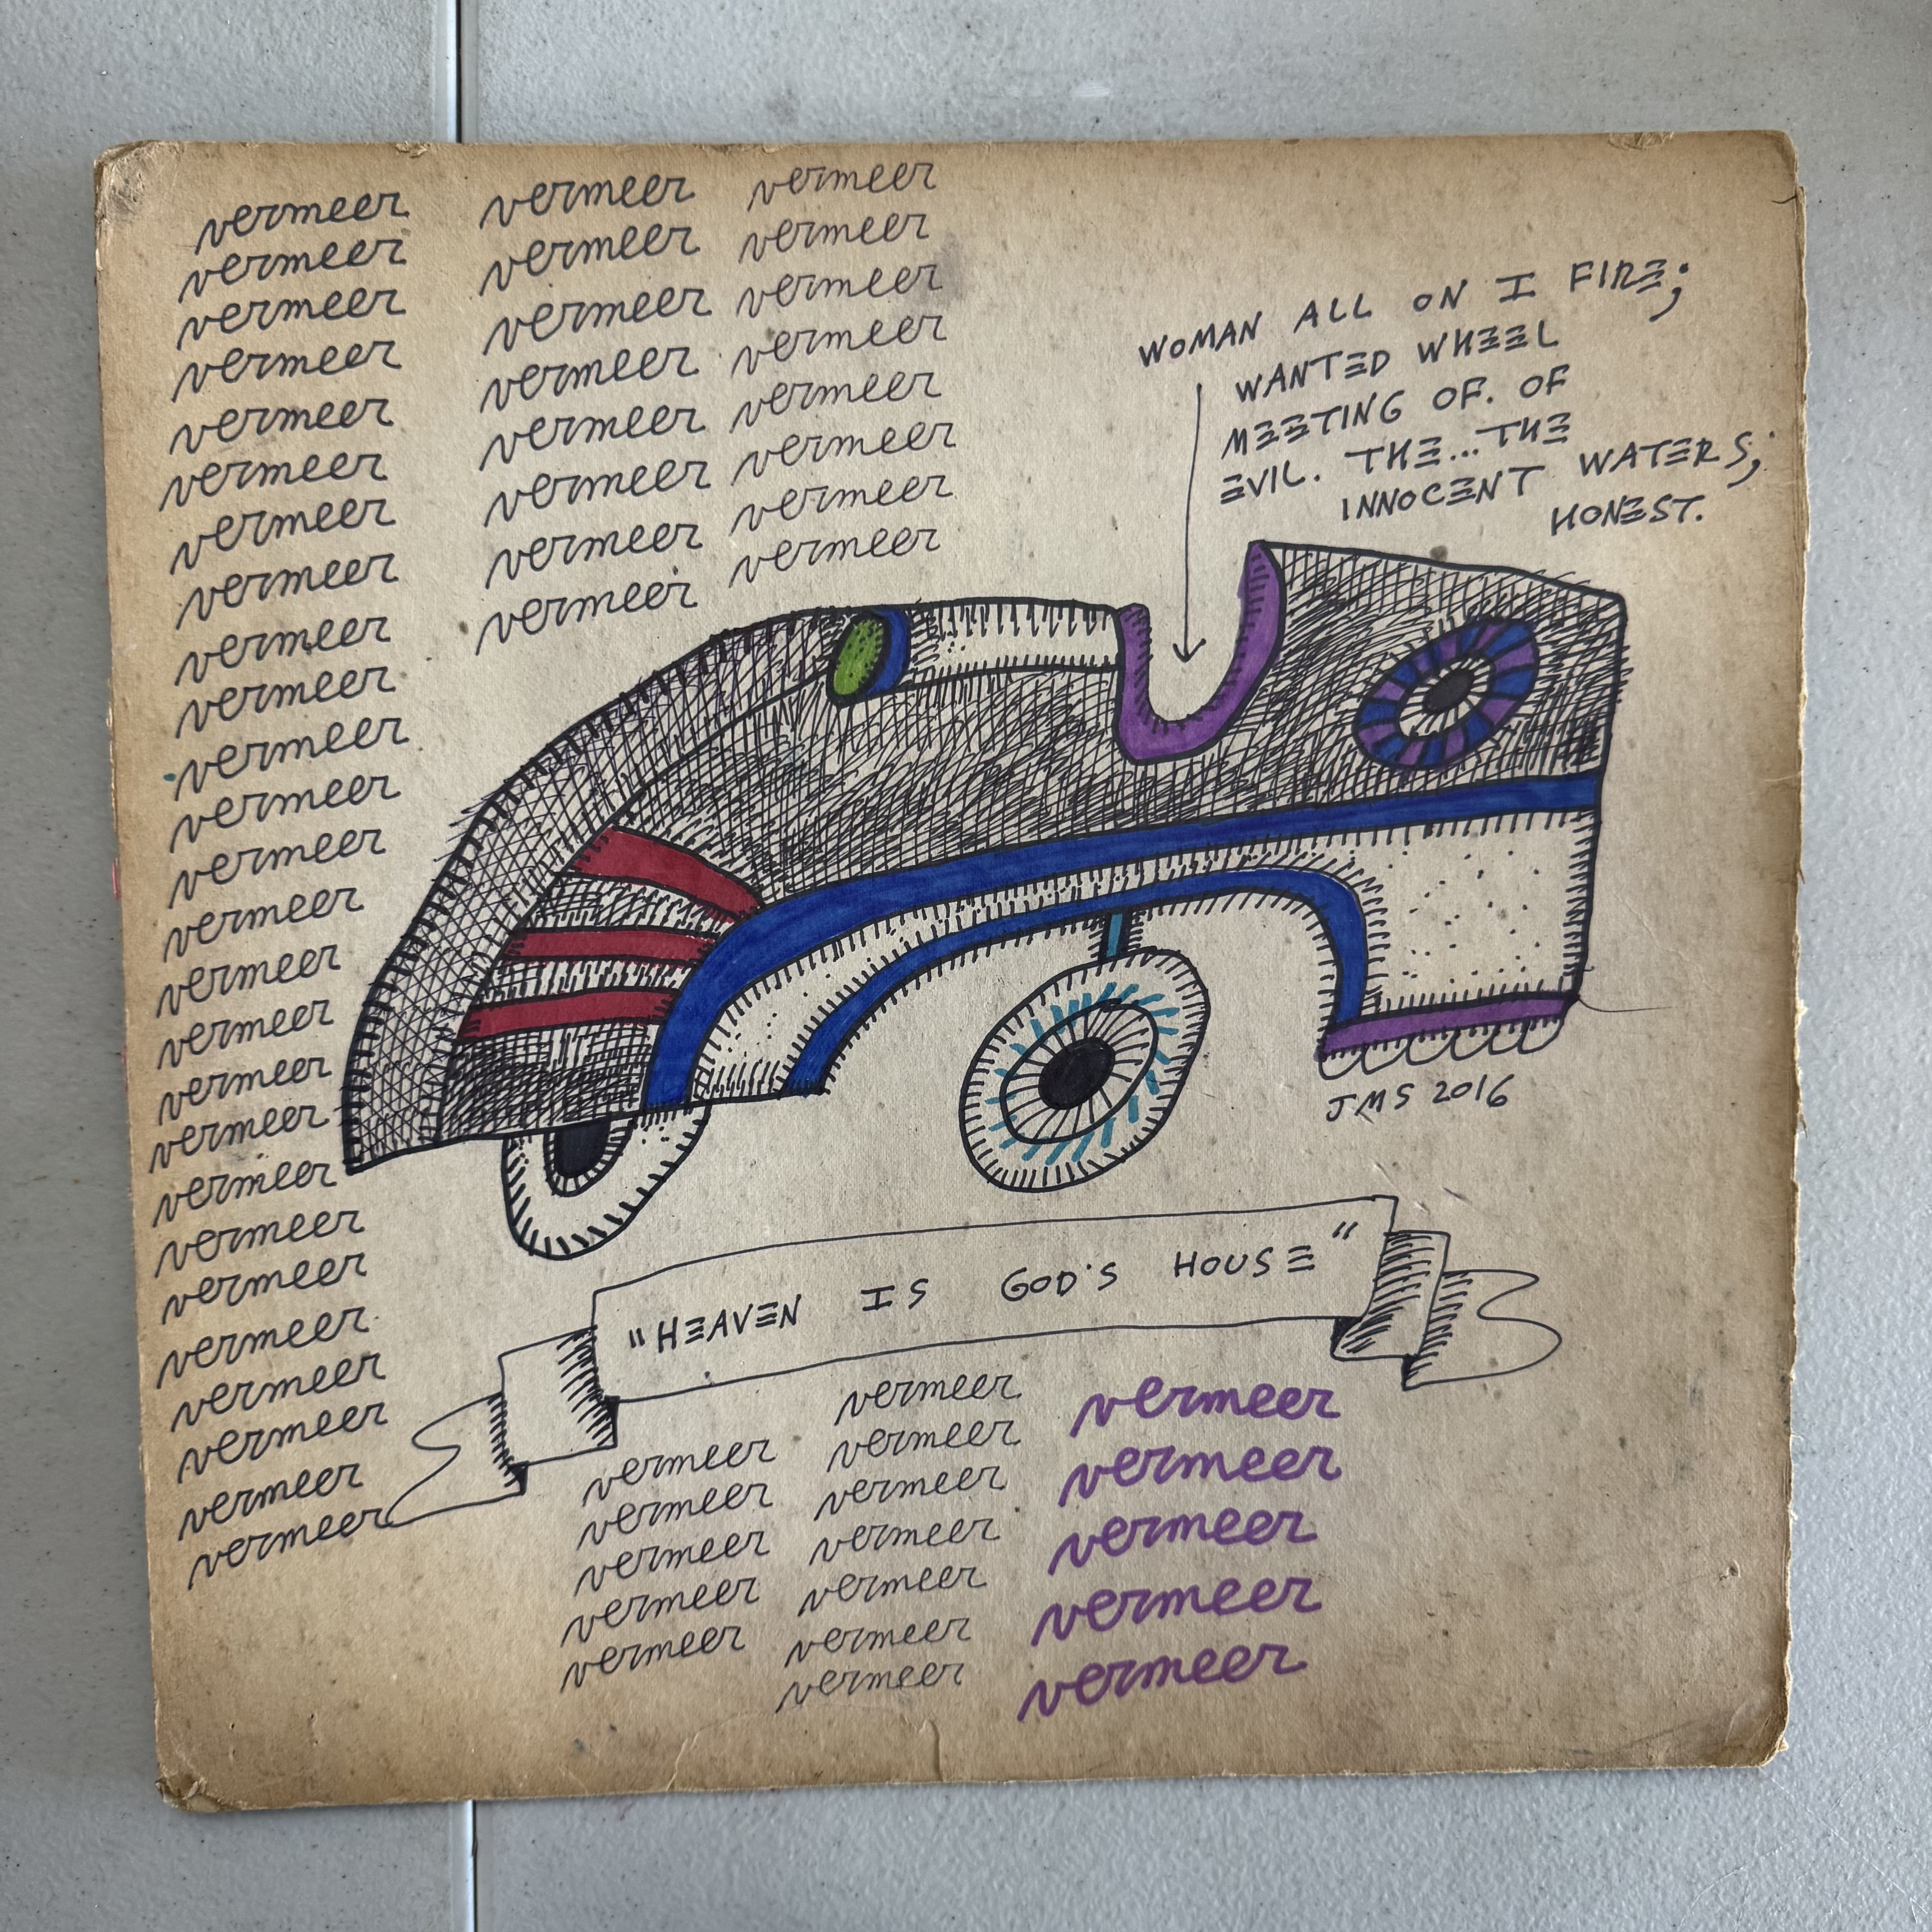 vermeer
vermeer
vermeer
vermeer
vermeer
vermeer
vermeer
vermeer
vermeer
vermeer
vermeer
vermeer
vermeer
vermeer
vermeer
vermeer
vermeer
vermeer
vermeer
vermeer
vermeer
vermeer
vermeer
vermeer
vermeer
vermeer
vermeer
vermeer
vermeer
vermeer
vermeer
vermeer
vermeer
vermeer
vermeer
vermeer
vermeer
vermeer
vermeer
vermeer
vermeer
vermeer
WOMAN ALL ON I FIRE;
WANTED WHEEL
MEETING OF. OF
EVIL. THE...THE
INNOCENT WATERS;
HONEST.
JMS 2016
"HEAVEN IS GOD'S HOUSE"
vermeer
vermeer
vermeer
vermeer
vermeer
vermeer
vermeer
vermeer
vermeer
vermeer
vermeer
vermeer
vermeer
vermeer
vermeer
vermeer
vermeer